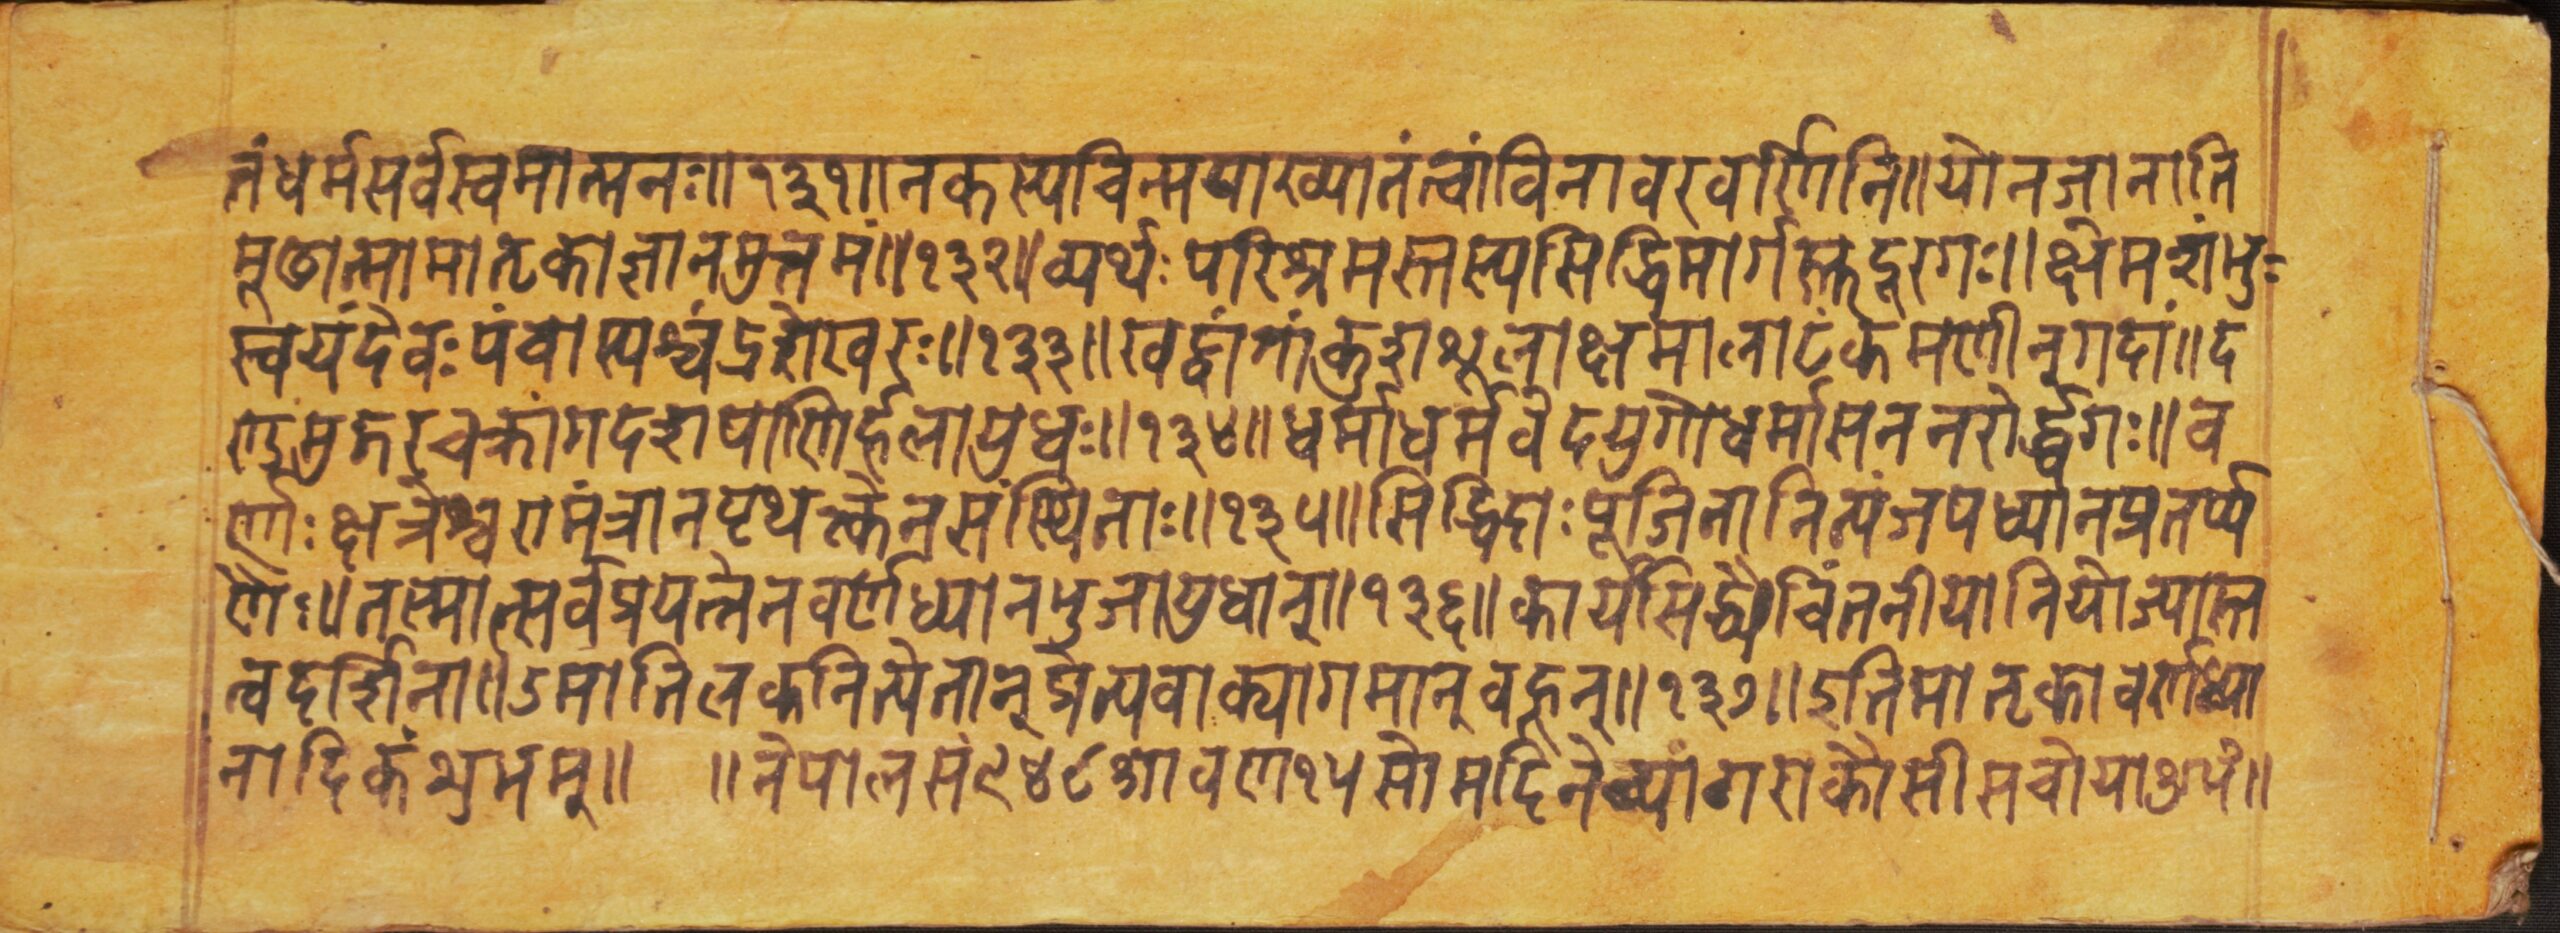 तं धर्मसर्वस्वमात्मनः॥१३१॥न कस्यचिन्मयाख्यातं त्वां विना वरवर्णिनि॥यो न जानाति
मूढात्मा मातृकाज्ञानमुत्तमं॥१३२॥व्यर्थः परिश्रमस्तस्य सिद्धिमार्गस्तु दूरगः॥क्षेमशंभुः
स्वयं देवः पंचास्यश्चंद्रशेखरः॥१३३॥खट्वांगांकुशशूलाक्षमालाटंकमणीन् गदां॥द
ण्डमुद्गरचक्रांगदशपाणिर्हलायुधः॥१३४॥धर्माधर्मवेदयुगो धर्मासननरोर्द्ध्वगः॥व
र्णाः क्षत्रेश्वरा मंत्रा न पृथक्त्केन संस्थिताः॥१३५॥सिद्धिदाः पूजिता नित्यं जपध्यानप्रतर्प्प
णैः॥तस्मात्सर्वप्रयत्नेन वर्णध्यानभुजायुधान्॥१३६॥कार्यसिद्ध्यै चिंतनीया नियोज्यास्त
त्वदर्शिना॥उमातिलकनित्येतान् प्रत्यवाक्यागमान् वहून्॥१३७॥इति मातृकावर्णध्या
नादिकं शुभम्॥ ॥नेपाल सं ९४८ श्रावण १५ सोमदिने